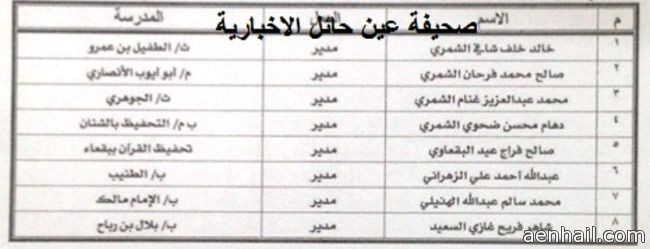 صحيفة عين حائل الاخبارية
م الاسم العمل المدرسة
١ خالد خلف شافي الشمري مدير ث/ الطفيل بن عمرو
٢ صالح محمد فرحان الشمري مدير م/ أبو أيوب الأنصاري
٣ محمد عبدالعزيز غنام الشمري مدير ث/ الجوهري
٤ دهام محسن ضحوي الشمري مدير ب م/ التحفيظ بالشنان
٥ صالح فراج عيد البقعاوي مدير تحفيظ القرآن ببقعاء
٦ عبدالله أحمد علي الزهراني مدير ب/ الطنيب
٧ محمد سالم عبدالله الهذيلي مدير ب/ الإمام مالك
٨ شاهر فريح غازي السعيد مدير ب/ بلال بن رباح
aenhail.com